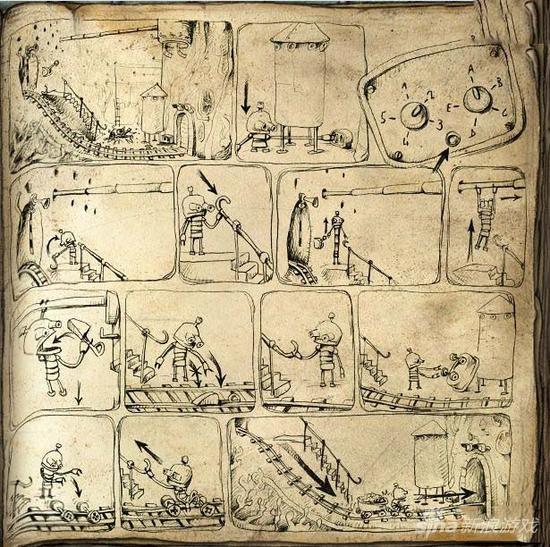 1
2
3
4
5
A
B
C
D
E
sina新浪游戏